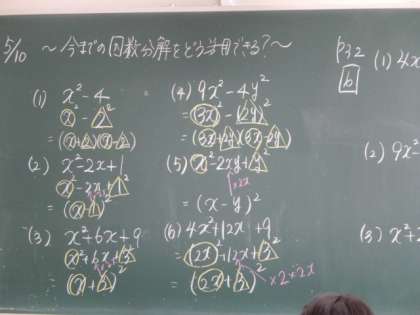 5/10 〜今までの因数分解をどう活用できる?〜
(1) x²-4
= x²-2²
=(x+2)(x-2)
(2) x²-2x+1
x²-2x+1²
=(x-1)²
(3) x²+6x+9
x²+6x+3²
=(x+3)²
(4) 9x²-4y²
=(3x)²-(2y)²
=(3x+2y)(3x-2y)
(5) x²-2xy+y²
=(x-y)²
(6) 4x²+12x+9
=(2x)²+12x+3²
×2×2x
=(2x+3)²
P32
6
(1) 4x
(2) 9x²
(3) x²+2